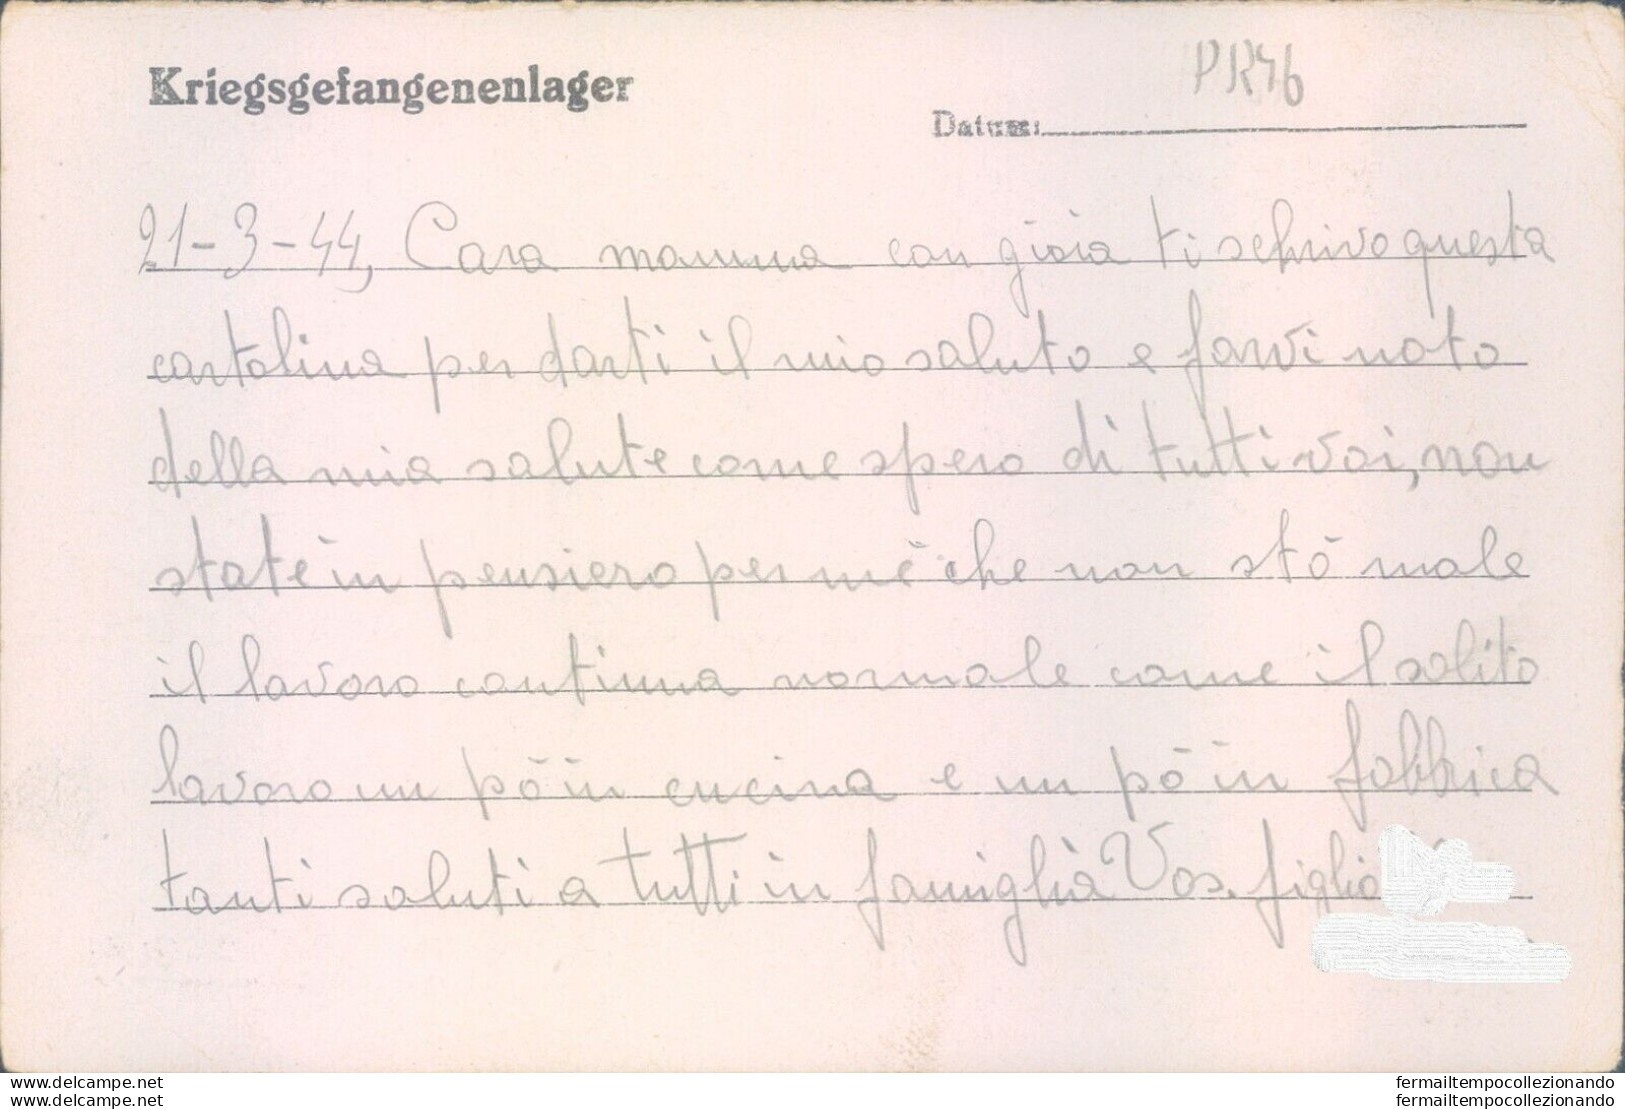 Kriegsgefangenenlager
PR46
Datum:
21-3-44, Cara mamma con gioia ti schrivo questa
cartolina per darti il mio saluto e farvi noto
della mia salute come spero di tutti voi, non
state in pensiero per mè che non stò male
il lavoro continua normale come il solito
lavoro un pò in cucina e un pò in fabbrica
tanti saluti a tutti in famiglia Vos. figlio
www.delcampe.net
fermailtempocollezionando
www.delcampe.net
fermailtempocollezionando